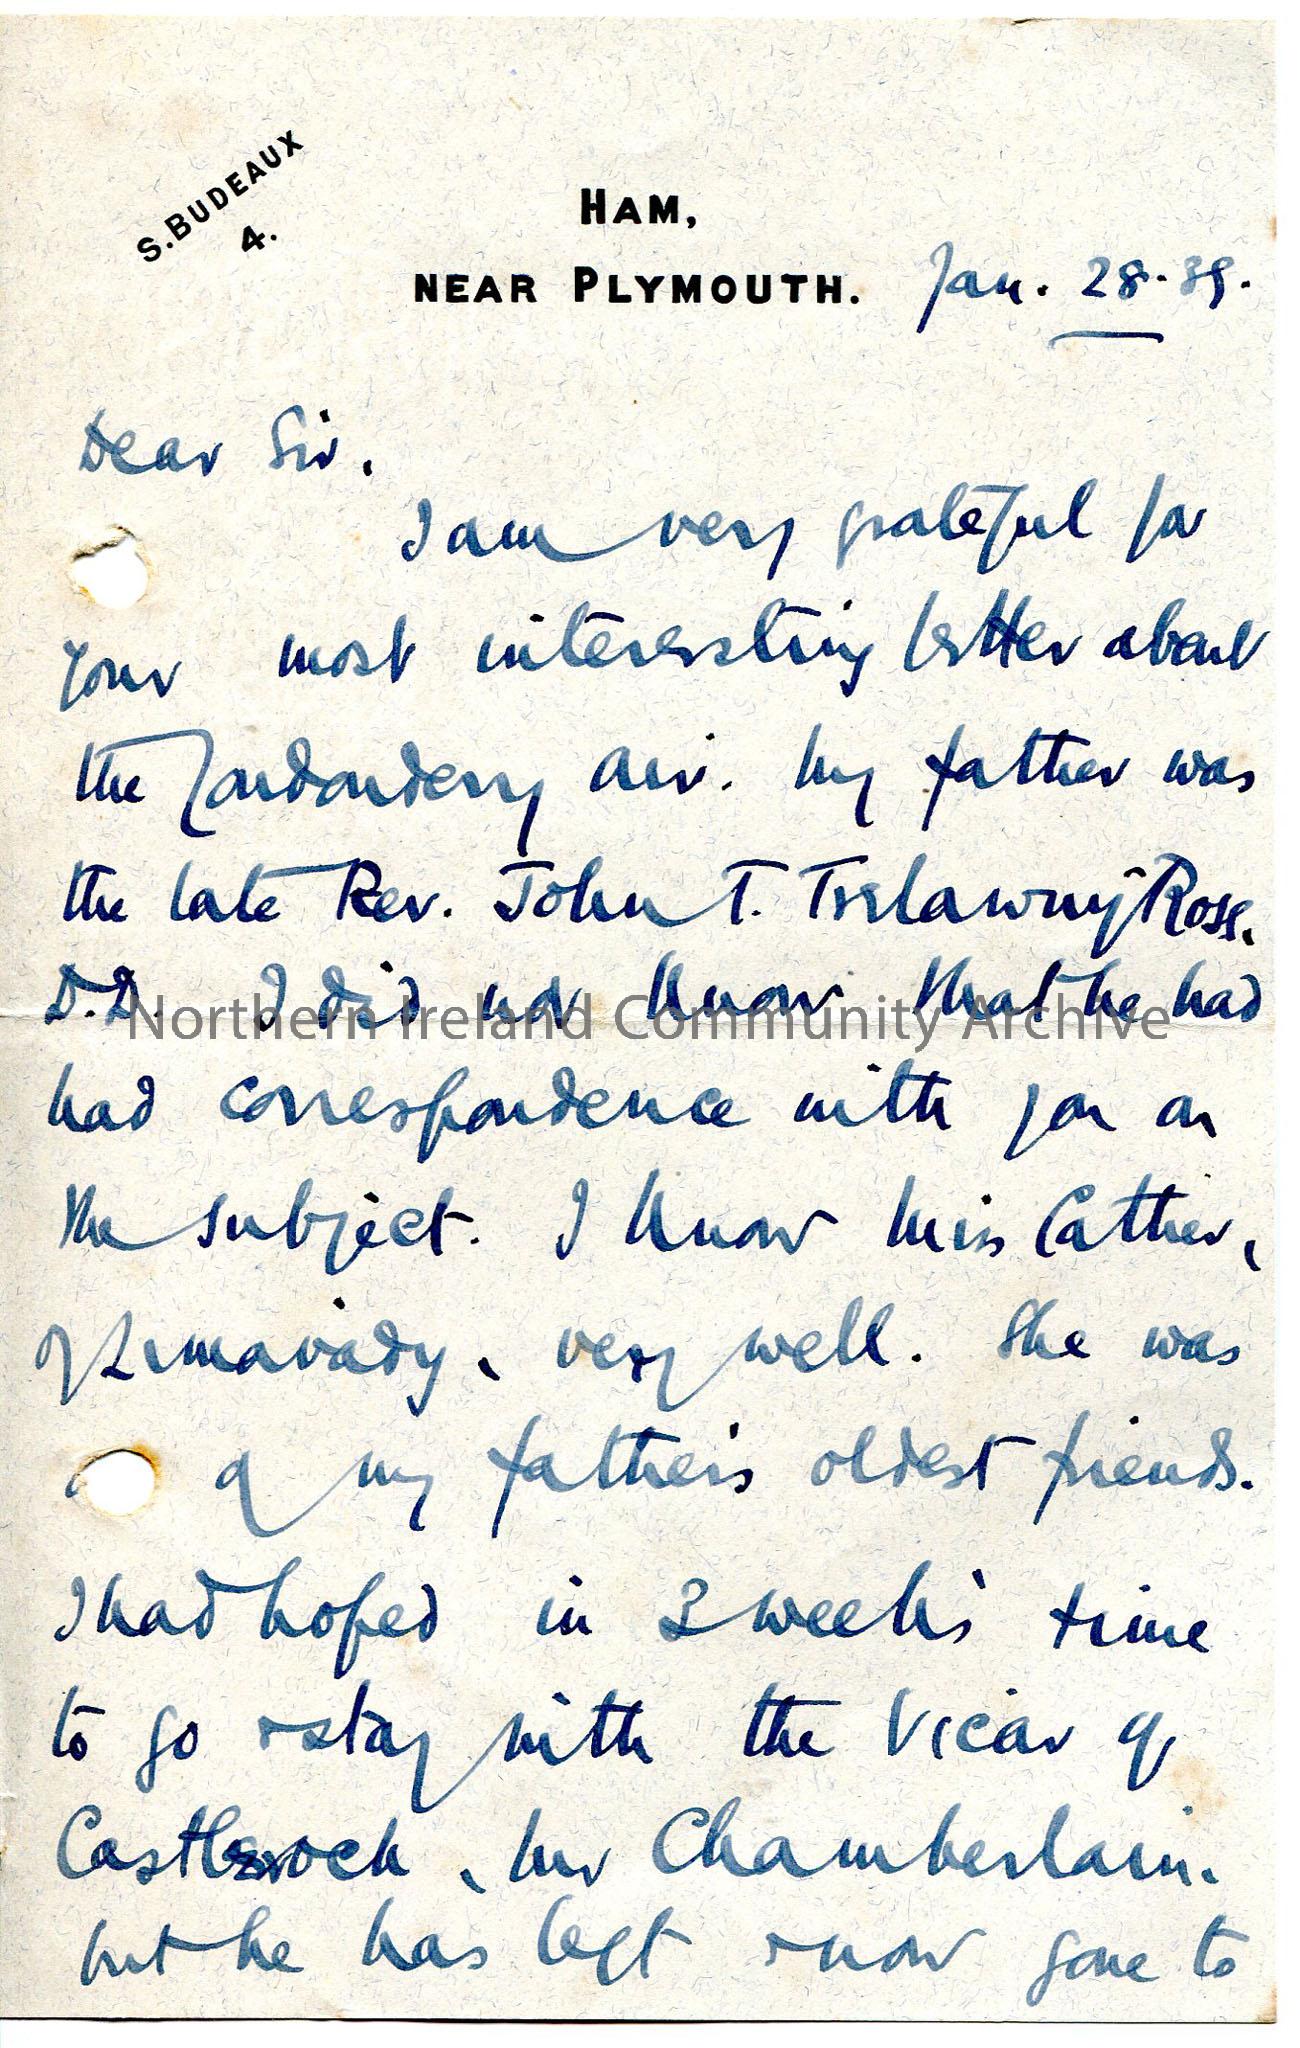 S. BUDEAUX
4.
HAM,
NEAR PLYMOUTH.
Jan. 28. 39.
Dear Sir.
I am very grateful for
your most interesting letter about
the Londonderry air. My father was
the late Rev. John T. Trelawny Ross.
D.D. I did not know that he had
had correspondence with you on
the subject. I know Miss Cather,
of Limavady, very well. She was
of my father's oldest friends.
I had hoped in 2 week's time
to go & stay with the Vicar of
Castlerock, Mr Chamberlain.
but he has left & now gone to
Northern Ireland Community Archive